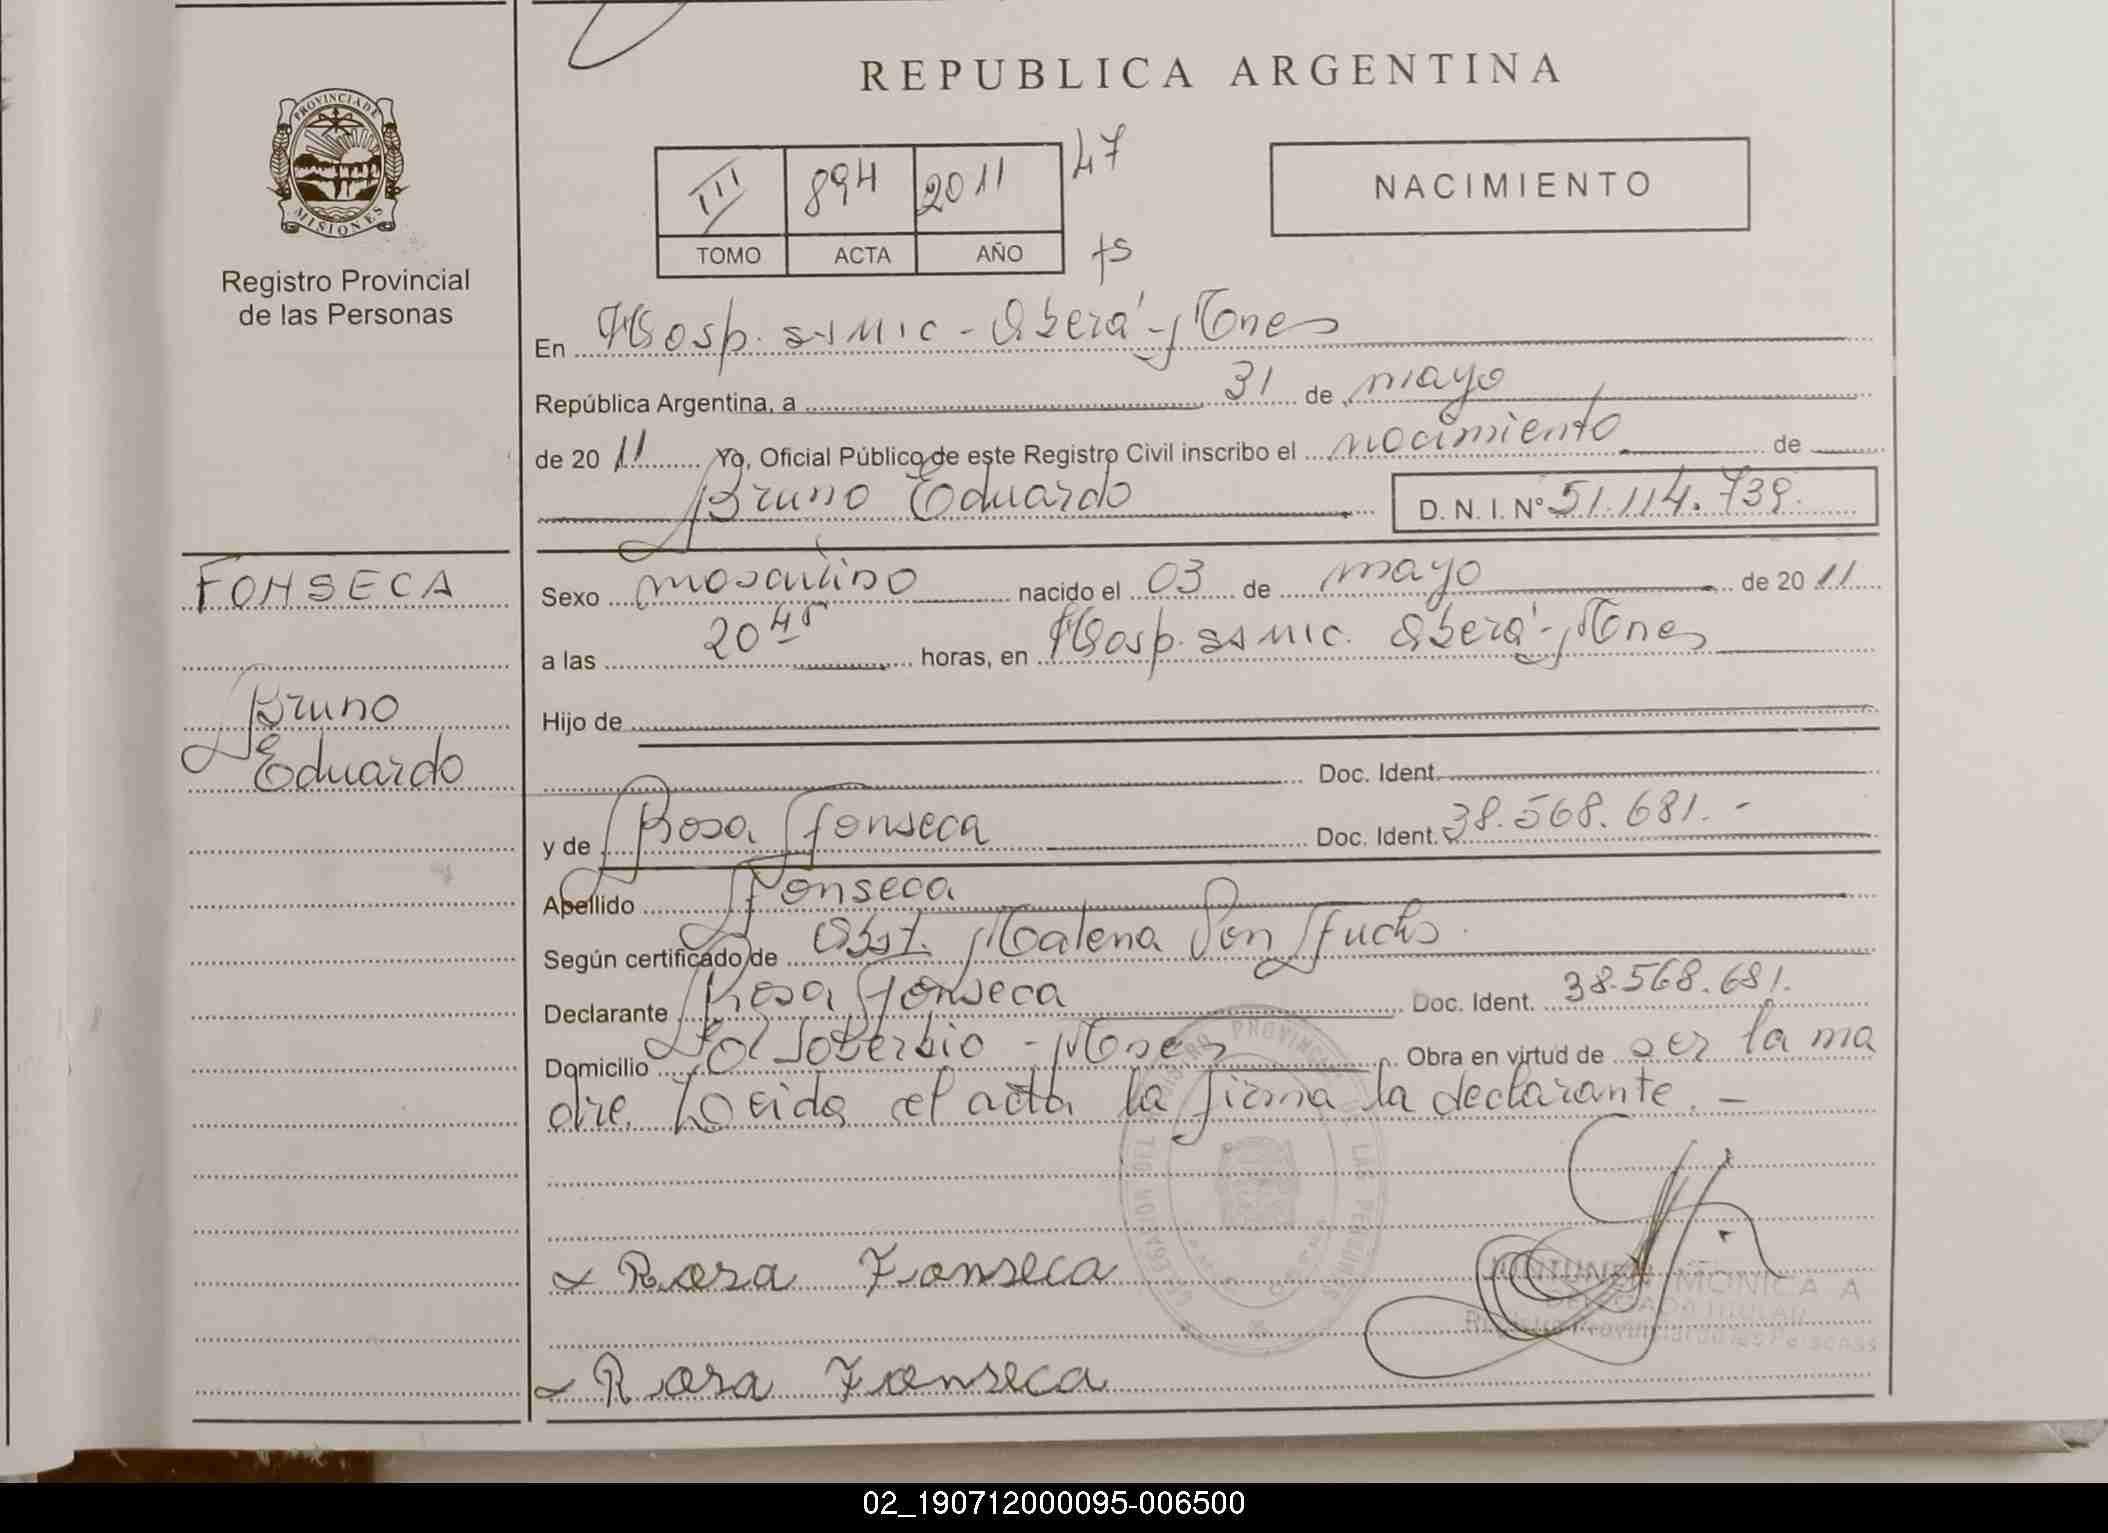 REPUBLICA ARGENTINA
PROVINCIA DE
MISIONES
Registro Provincial
de las Personas
III 894 2011 47
TOMO ACTA AÑO fs
NACIMIENTO
En Hosp. SAMIC - Oberá - Mnes
República Argentina, a 31 de mayo
de 20 11 Yo, Oficial Público de este Registro Civil inscribo el nacimiento de
Bruno Eduardo D. N. I. Nº 51.114.739.
FONSECA
Bruno
Eduardo
Sexo masculino nacido el 03 de mayo de 20 11
a las 20 45 horas, en Hosp. SAMIC. Oberá - Mnes
Hijo de
Doc. Ident.
y de Rosa Fonseca Doc. Ident. 38.568.681.-
Apellido Fonseca
Según certificado de Obst. Malena Von Fuchs.
Declarante Rosa Fonseca Doc. Ident. 38.568.681.
Domicilio El Soberbio - Mnes Obra en virtud de ser la ma
dre. Leida el acta la firma la declarante. -
Rosa Fonseca
MONICA A
DELEGADA TITULAR
Registro Provincial de las Personas
Rosa Fonseca
02_190712000095-006500